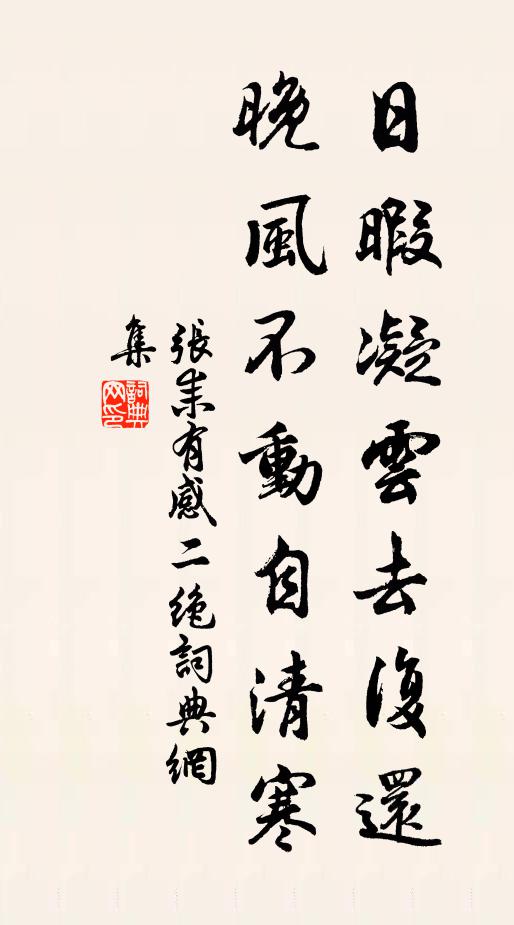 日暇凝雲去復還
晚風不動自清寒
張耒有感二絶詞典網
集
詞典
网印